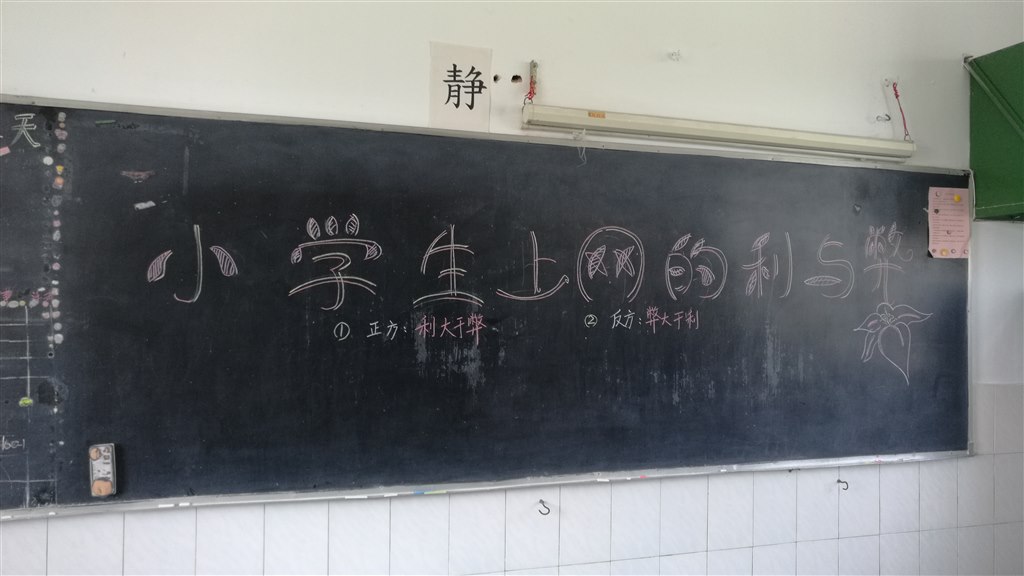 静
天
小学生上网的利与弊
① 正方：利大于弊
② 反方：弊大于利